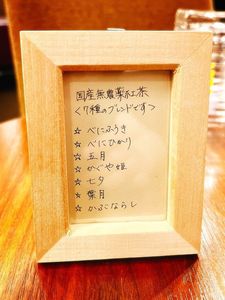 国産無農薬紅茶
<7種のブレンドです>
☆ べにふうき
☆ べにひかり
☆ 五月
☆ かぐや姫
☆ 七夕
☆ 葉月
☆ かぶこならし